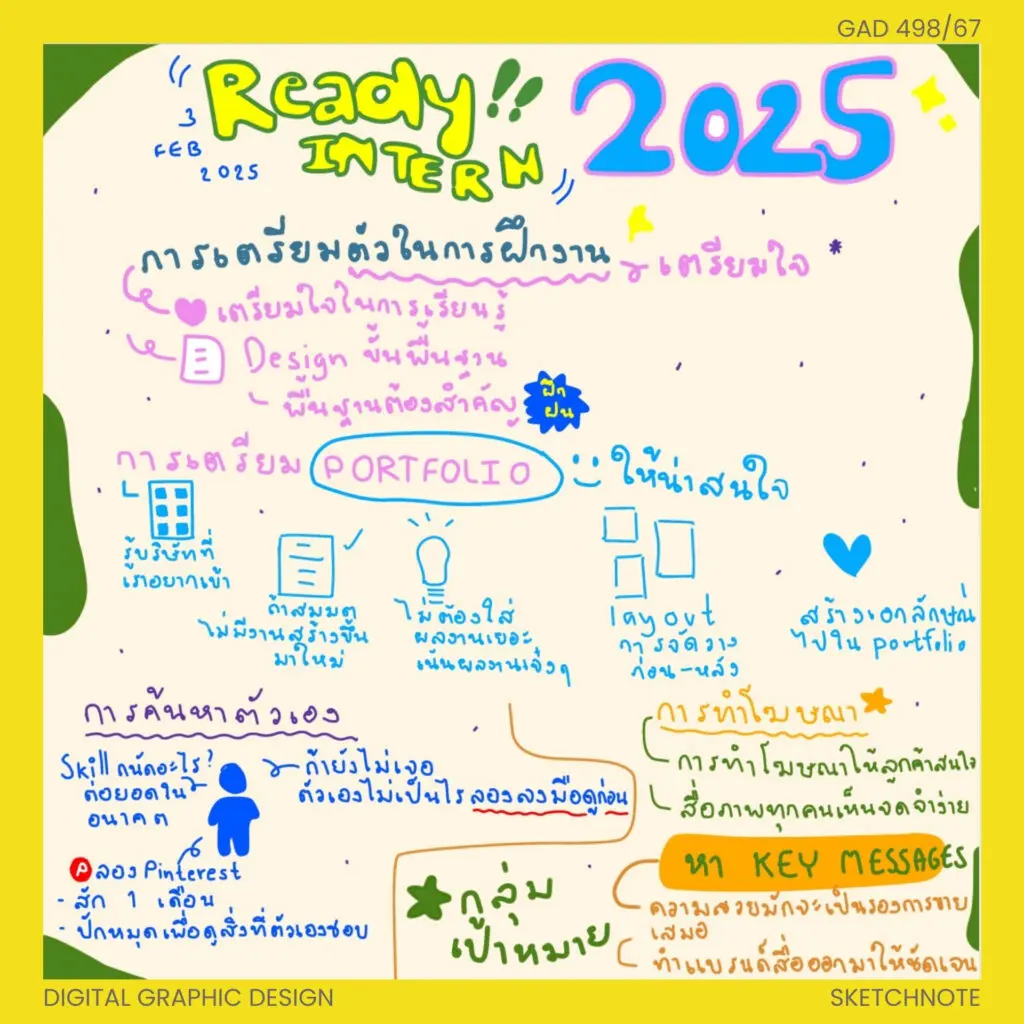 GAD 498/67
Ready!!
INTERN
2025
3
FEB
2025
การเตรียมตัวในการฝึกงาน
เตรียมใจ
เตรียมใจในการเรียนรู้
Design ขั้นพื้นฐาน
พื้นฐานต้องสำคัญ
ฝึก
ฝน
การเตรียม PORTFOLIO ให้น่าสนใจ
รู้บริษัทที่
เราอยากเข้า
ถ้าสมมต
ไม่มีงานสร้างขึ้น
มาใหม่
ไม่ต้องใส่
ผลงานเยอะ
เน้นผลงานเจ๋งๆ
layout
การจัดวาง
ก่อน-หลัง
สร้างเอกลักษณ์
ไปใน portfolio
การค้นหาตัวเอง
Skill ถนัดอะไร?
ต่อยอดใน
อนาคต
ถ้ายังไม่เจอ
ตัวเองไม่เป็นไรลองลงมือดูก่อน
ลอง Pinterest
- สัก 1 เดือน
- ปักหมุดเพื่อดูสิ่งที่ตัวเองชอบ
การทำโฆษณา
การทำโฆษณาให้ลูกค้าสนใจ
สื่อภาพทุกคนเห็นจดจำง่าย
กลุ่ม
เป้าหมาย
หา KEY MESSAGES
ความสวยมักจะเป็นรองการขาย
เสมอ
ทำแบรนด์สื่อออกมาให้ชัดเจน
DIGITAL GRAPHIC DESIGN
SKETCHNOTE